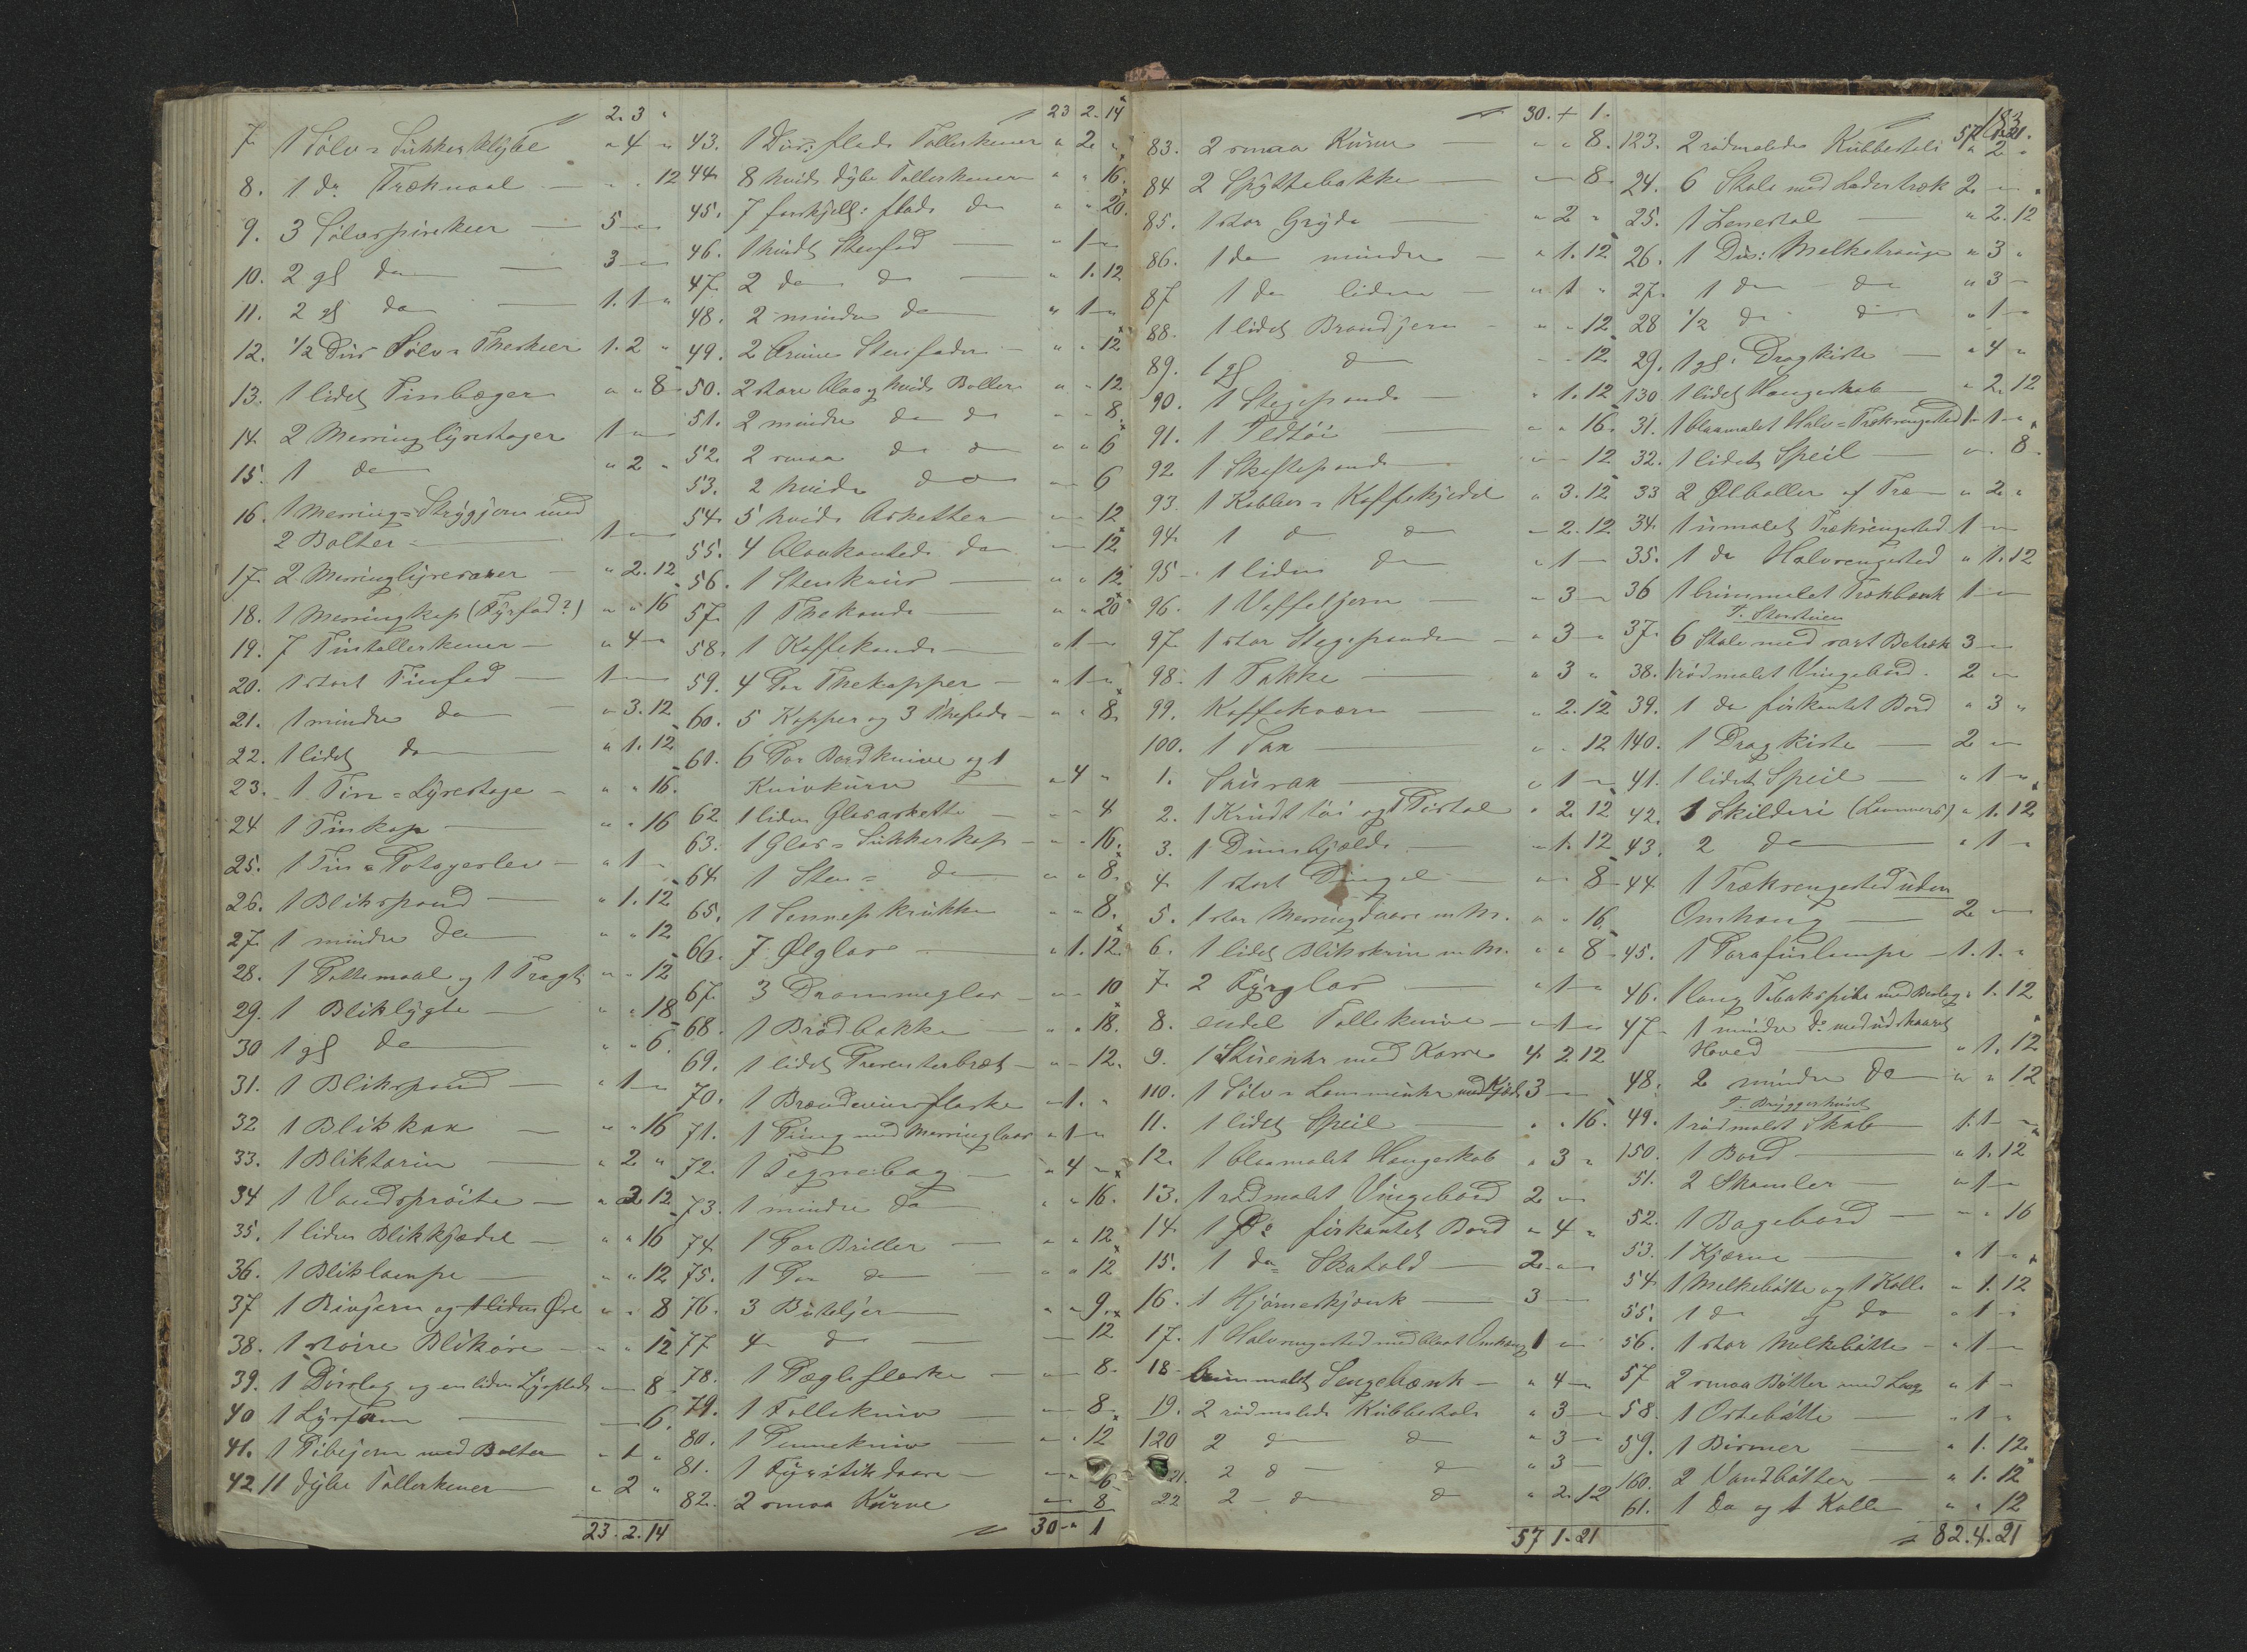 2. 3 "
7. 1 Sølv=Sukkerklype " 4 "
8. 1 do Træknaal — " " 12
9. 3 Sølvspiskeer — 5 — "
10. 2 gl do — 3 — "
11. 2 gl do — 1. 1 "
12. 1/2 Dus Sølv=Theskeer 1. 2 "
13. 1 lidet Tinbæger " " 8
14. 2 Messinglysestager 1 — "
15. 1 do " 2 "
16. 1 Messing=Strygjern med
2 Bolter — 1 — "
17. 2 Messinglysesaxer — " 2. 12
18. 1 Messingkop (Fyrfad?) " " 16
19. 7 Tintallerkener — " 4 "
20. 1 stort Tinfad — 1 — "
21. 1 mindre do — " 3. 12
22. 1 lidet do — " 1. 12
23. 1 Tin=Lysestage — " " 16
24 1 Tinkop — " " 16
25. 1 Tin=Potageslev — " 1 "
26. 1 Blikspand — " 1. 12
27. 1 mindre do — " " 12
28. 1 Pottemaal og 1 Tragt " " 12
29. 1 Bliklygte — " " 18
30 1 gl do — " " 6
31. 1 Blikspand — " 1 "
32 1 Blikkan — " " 16
33. 1 Bliktarin — " 2 "
34 1 Vandsprøite — " 2. 12
35. 1 liden Blikkjædel — " " 16
36. 1 Bliklampe — " " 12
37 1 Rivjern og 1 liden Øse " " 8
38. 1 større Blikøse — " " 12
39. 1 Dørslag og en liden Lyseplade — 8
40 1 Lysform — 6.
41. 1 Pibejern med Bolter " 1 "
42 11 dybe Tallerkener — " 2 "
23. 2. 14
23 2. 14
43. 1 Dus: flade Tallerkener " 2 "
44. 8 hvide dybe Tallerkener " " 16
45. 7 forskjell: flade do " " 20.
46. 1 hvidt Stenfad — " 1 "
47. 2 do do — " 1. 12
48. 2 mindre do — " 1 "
49. 2 brune Stenfade — " " 12
50. 2 store blaa og hvide Boller " " 12
51. 2 mindre do do " " 8
52. 2 smaa do do " " 6
53. 2 hvide do " " 6
54. 5 hvide Asketter — " " 12
55. 4 blaakantede do — " " 12
56. 1 Stenkrus — " " 12
57. 1 Thekande — " " 20
58. 1 Kaffekande — " 1 "
59. 4 Par Thekopper — " 1 "
60. 5 Kopper og 3 Thefade — " " 8.
61. 6 Par Bordknive og 1
Knivkurv — " 4 "
62 1 liden Glasaskette — " " 4
63. 1 Glas=Sukkerkop — " " 16.
64. 1 Sten= do — " " 8.
65. 1 Sennepskrukke " " 8.
66. 7 Ølglas — " 1. 12.
67. 3 Drammeglas — " " 10
68. 1 Brødbakke — " " 18.
69. 1 lidet Presenterbræt — " " 12.
70. 1 Brændevinsflaske " 1. "
71. 1 Pung med Messinglaas " 1 "
72. 1 Tegnebog — " 4 "
73. 1 mindre do " " 16.
74. 1 Par Briller — " " 12
75. 1 Par do — " " 12
76. 3 Buteljer — " " 9.
77 4 do — 12
78. 1 Pægleflaske — 8
79. 1 Follekniv — 8
80. 1 Penneknv — " " 12
81. 1 Fyrstikdaase — " " 6
82. 2 smaa Kurve — 8
30 " 1
30. + 1.
83. 2 smaa Kurve — " " 8.
84 2 Spyttebakke — " 8
85. 1 stor Gryde — " 2 "
86. 1 do mindre — " 1. 12
87 1 do liden — " 1 "
88. 1 lidet Brandjern — " " 12
89. 1 gl do — " 12
90. 1 Stegepande — " 1. 12
91. 1 Ildtøi — " " 16.
92 1 Skaftepande — " 12
93. 1 Kobber=Kaffekjedel " 3. 12
94. 1 do do — 2. 12
95 1 liden do " 1 —
96. 1 Vaffeljern — " 3 —
97. 1 stor Stegepande — " 3 —
98. 1 Takke — " 3 "
99. Kaffekværn — " 2. 12
100. 1 Sax — " " 12
1. Sausax — " 1 —
2. 1 Krudttøi og 1 Pistol " 2. 12
3. 1 Dunskjælde — " 1. 12
4. 1 stort — " 8
5. 1 stor Messingdaase m. M. " " 16
6. 1 lidet Blikskrin m. M. " " 8
7. 2 Fyrglas — " 1 "
8. endel Falleknive — " 1 "
9. 1 Stueuhr med Kasse 4. 2 12
110. 1 Sølv=Lommeuhr med Kjæde 3 —
11. 1 lidet Speil — " " 16.
12. 1 blaamalet Hængeskab " 3 "
13. 1 rødmalet Vingebord 2 "
14. 1 Do firkantet Bord " 4 "
15. 1 do Skatold — 2 "
16. 1 Hjørneskjænk — 3 —
17. 1 Halvsengested med blaat Omhæng 1 "
18 brunmalet Sengebænk — " 4 —
19. 2 rødmalede Kubbestole " 3 —
120 2 do do " 3 —
21. 2 do do " 3 —
22 2 — do do " 2. 12
57 1. 21
183.
57 1. 21.
123. 2 rødmalede Kubbestole " 2 "
24. 6 Stole med Lædertræk 2 — "
25. 1 Lænestol — " 2. 12
26. 1 Dus: Melketrauge " 3 "
27. 1 do do " 3 —
28 1/2 do do " 1 —
29. 1 gl. Dragkiste — " 4 "
130 1 lidet Hængeskab — " 2. 12
31. 1 blaamalet Halv=Træksengested 1 — 1 — "
32. 1 lidet Speil — " 8.
33 2 Ølboller af Træ — " 2 "
34. 1 umalet Træksengested 1 —
35. 1 do Halvsengested " 1. 12
36 1 brunmalet Trækbænk 1 —
I. Storstuen
37. 6 Stole med sort Betræk 3 —
38. 1 rødmalet Vingebord. 2 —
39. 1 do firkantet Bord " 3 "
140. 1 Dragkiste — 2 —
41. 1 lidet Speil — " 1 "
42. 1 Skilderi (Lammers) " 1. 12
43. 2 do — " 1 —
44 1 Træksengested uden
Omhæng — 2 —
45. 1 Parafinlampe — 1. 1. "
46. 1 lang Tobakspibe med Beslag " 1. 12
47 — 1 mindre do med udskaaret
Hoved — " 1. 12
48. 2 mindre do — " " 12
I. Bryggerhuset
49. 1 rødmalet Skab — 1. 1 —
150. 1 Bord — " 1. 12
51. 2 Skamler — " 1 —
52. 1 Bagebord — " " 16
53. 1 Kjærne — " 1 "
54 1 Melkebøtte og 1 Kolle " 1. 12
55. 1 do og do " 1 "
56. 1 stor Melkebøtte — " 1 —
57 2 smaa Bøtter med Laag " 1 —
58. 1 Ostebøtte — " 1 "
59. 1 Bismer — " 1. 12.
160. 2 Vandbøtter — " 1. 12
61. 1 Do og 1 Kolle " " 12
82. 4. 21